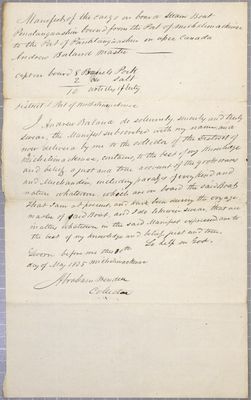 Manifest of the cargo on board Steam Boat
Penetanguishine bound from the Port of Michilimackinac
to the Port of Penetanguishine in uper Canada
Andrew Balaud Master
on board 8 Barrels Pork
2 do Salt
10 articles
District & Port of Michilimackinac
I Andrew Balaud do solemnly, sincerely and truly
swear, the Manifest subscribed with my name and
now deliver by me to the collector of the District of
Michilimackinac, contains, to the best of my knowledge
and belief a just and true account of all the goods wares
and Merchandize, including packages of every kind and
nature whatsoever, which are on board the said Boat
that I am at present, and have been during the voyage
master of said Boat, and I do likewise swear that all
matters whatsoever in the said Manifest expressed are to
the best of my knowledge and belief just and true.
So help me God.
Sworn before me this
day of May 1835 Michilimackinac
Abraham Wendell
Collector